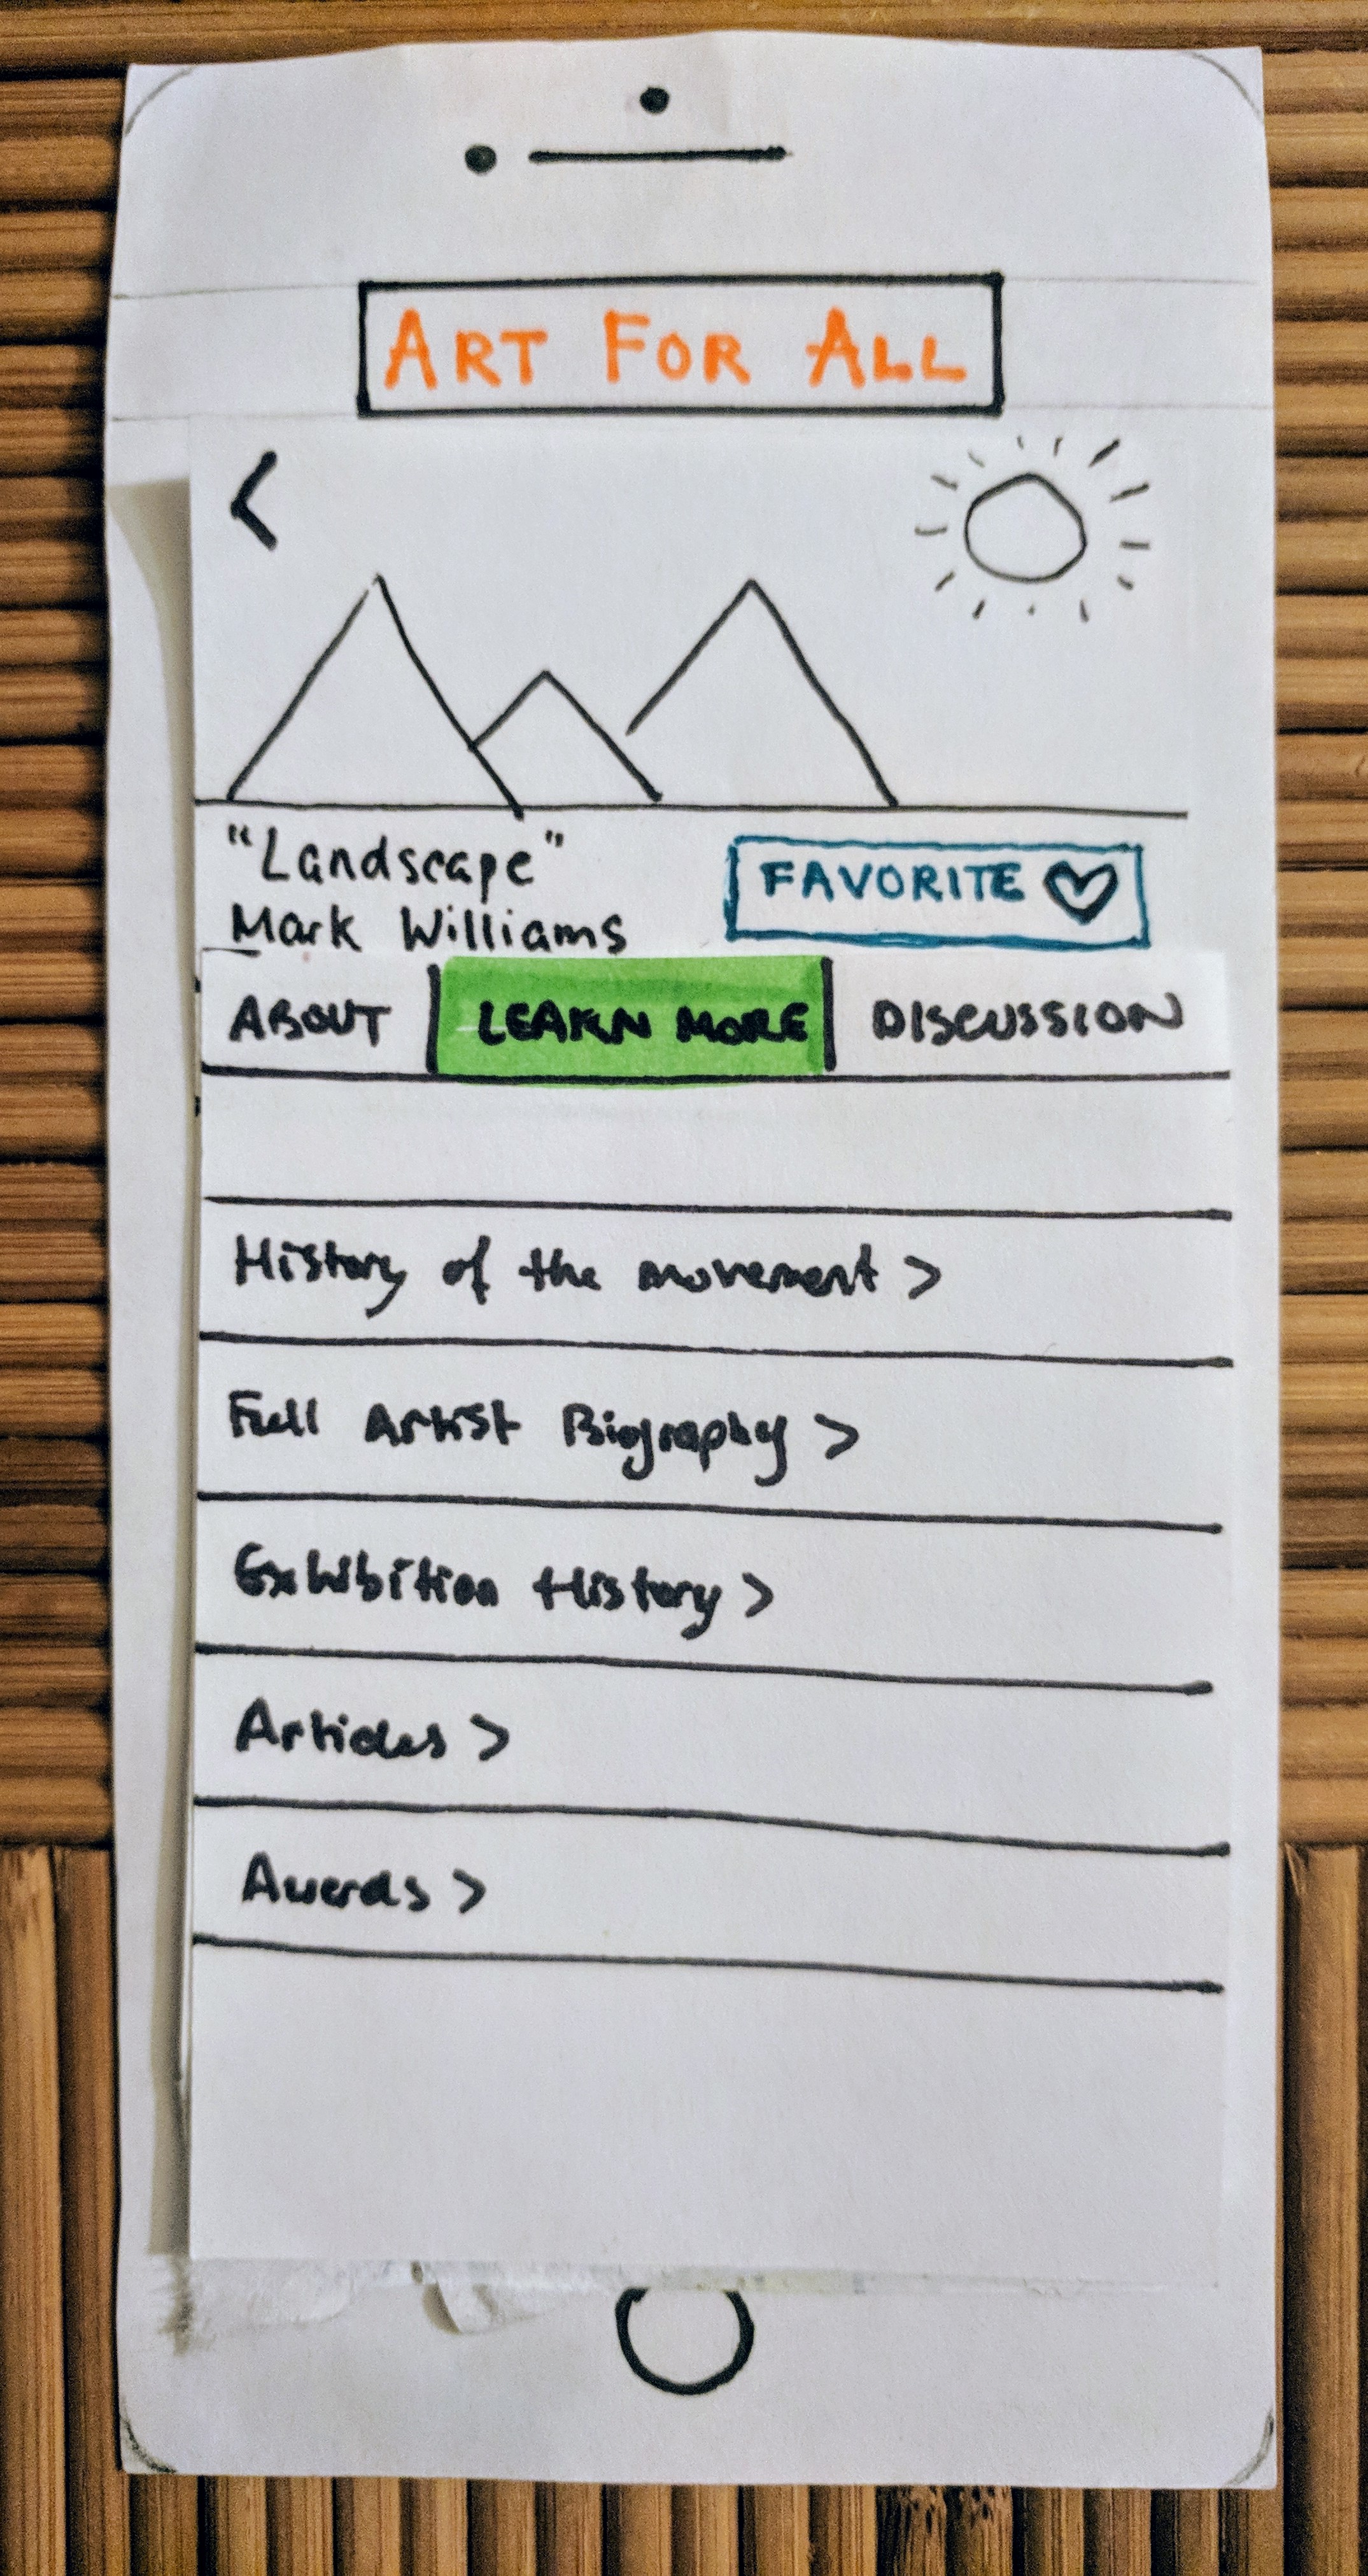 ART FOR ALL
<
"Landscape"
Mark Williams
FAVORITE ♡
ABOUT
LEARN MORE
DISCUSSION
History of the movement >
Full Artist Biography >
Exhibition History >
Articles >
Awards >